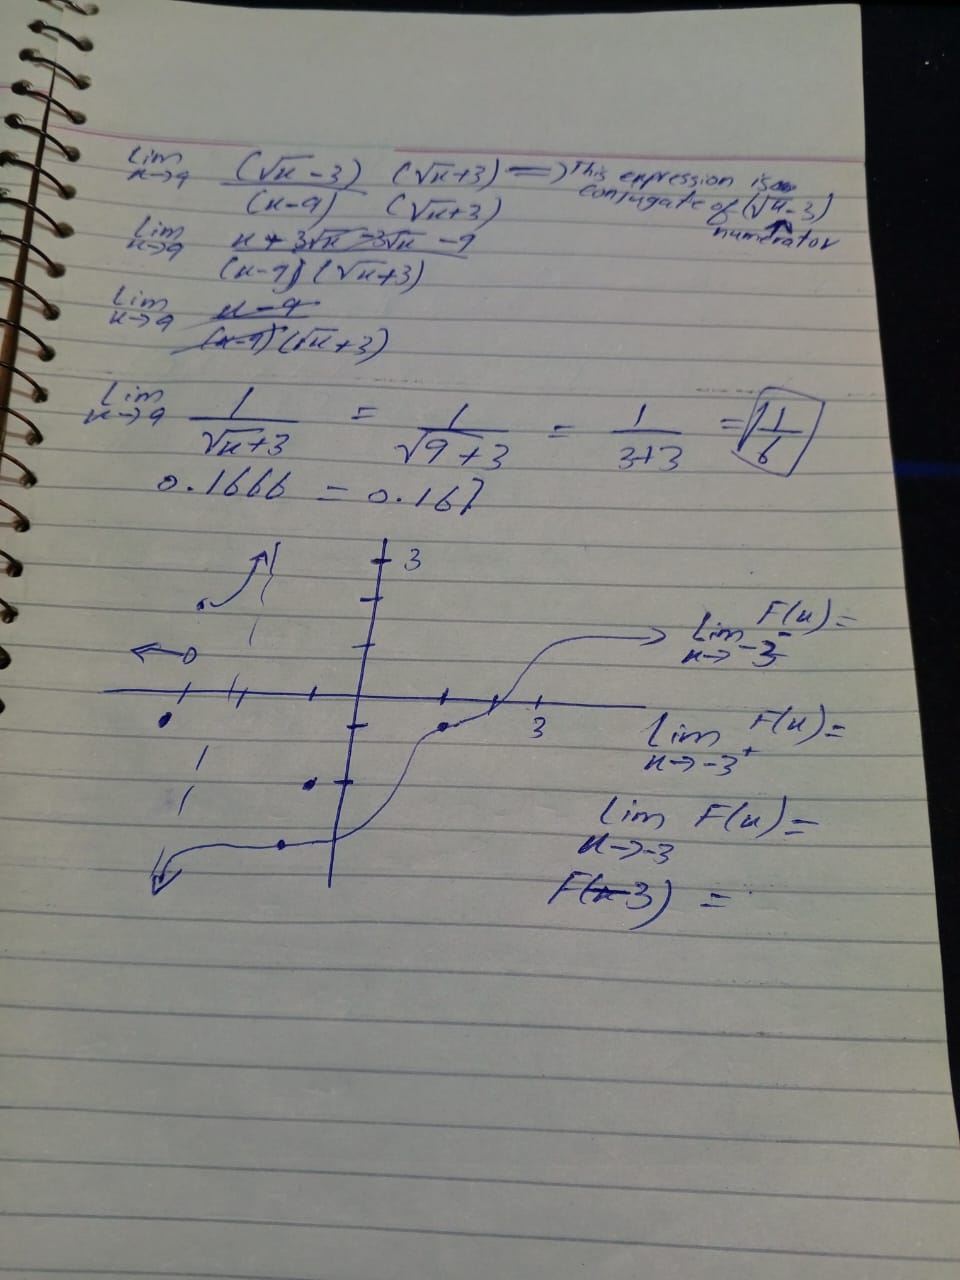 lim x→9 (√x - 3) (√x+3) => This expression is
(x-9) (√x+3) conjugate of (√x - 3)
numerator
lim x→9 x + 3√x - 3√x - 9
(x-9) (√x+3)
lim x→9 x - 9
(x-9) (√x+3)
lim x→9 1/(√x+3) = 1/(√9+3) = 1/(3+3) = 1/6
0.1666 = 0.167
3
lim x→-3⁻ F(x) =
3
lim x→-3⁺ F(x) =
lim x→-3 F(x) =
F(-3) =